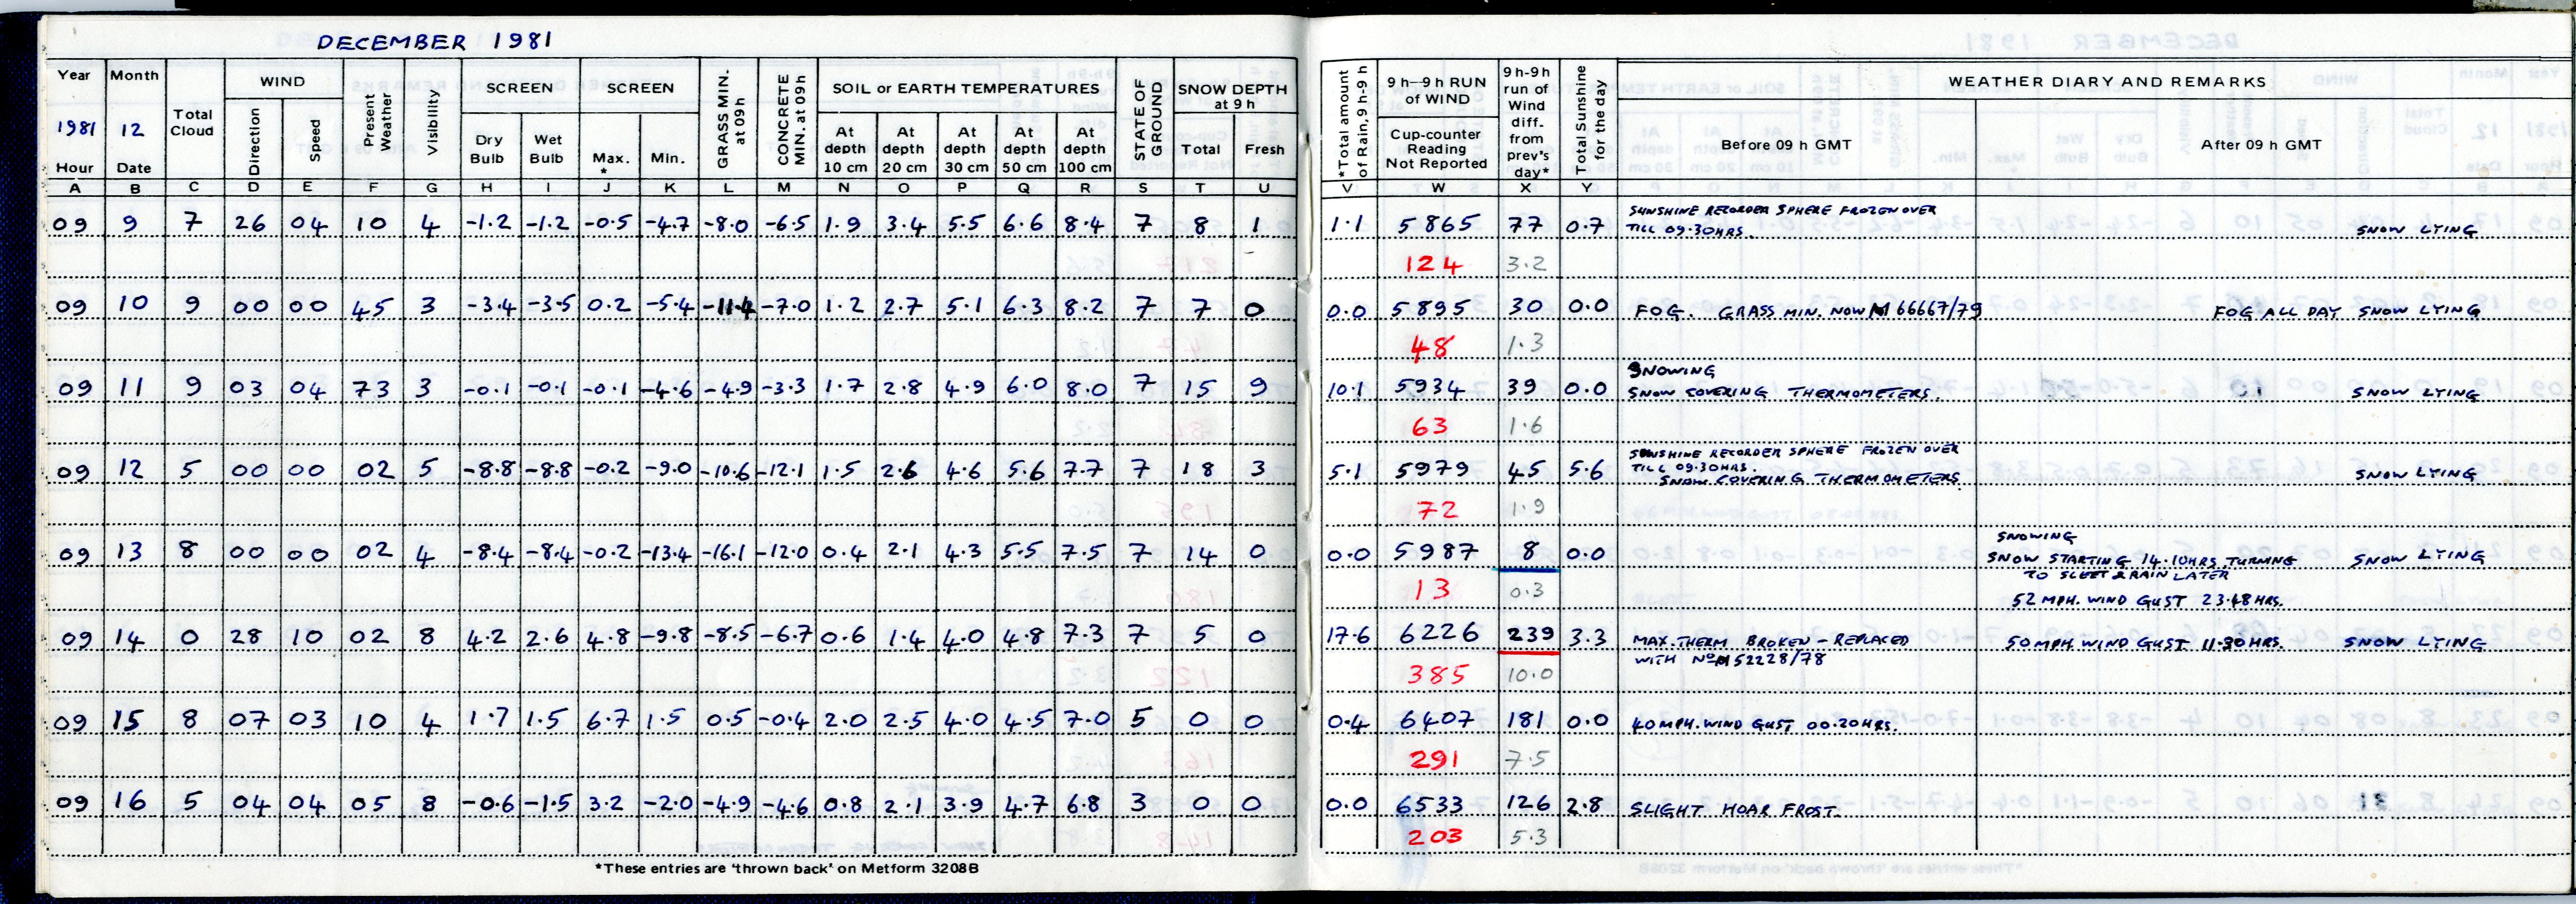 DECEMBER 1981
Year Month Total Cloud WIND Present Weather Visibility SCREEN SCREEN GRASS MIN. at 09h CONCRETE MIN. at 09h SOIL or EARTH TEMPERATURES STATE OF GROUND SNOW DEPTH at 9 h *Total amount of Rain, 9h-9 h 9 h—9 h RUN of WIND 9 h-9h run of Wind diff. from prev's day* Total Sunshine for the day WEATHER DIARY AND REMARKS
1981 12 Direction Speed Dry Bulb Wet Bulb Max. * Min. At depth 10 cm At depth 20 cm At depth 30 cm At depth 50 cm At depth 100 cm Total Fresh Cup-counter Reading Not Reported Before 09 h GMT After 09 h GMT
Hour Date
A B C D E F G H I J K L M N O P Q R S T U V W X Y
09 9 7 26 04 10 4 -1.2 -1.2 -0.5 -4.7 -8.0 -6.5 1.9 3.4 5.5 6.6 8.4 7 8 1 1.1 5865 77 0.7 SUNSHINE RECORDER SPHERE FROZEN OVER
TILL 09.30HRS. SNOW LYING
124 3.2
09 10 9 00 00 45 3 -3.4 -3.5 0.2 -5.4 -11.4 -7.0 1.2 2.7 5.1 6.3 8.2 7 7 0 0.0 5895 30 0.0 FOG. GRASS MIN. NOW M 66667/79 FOG ALL DAY SNOW LYING
48 1.3
SNOWING
09 11 9 03 04 73 3 -0.1 -0.1 -0.1 -4.6 -4.9 -3.3 1.7 2.8 4.9 6.0 8.0 7 15 9 10.1 5934 39 0.0 SNOW COVERING THERMOMETERS. SNOW LYING
63 1.6
SUNSHINE RECORDER SPHERE FROZEN OVER
09 12 5 00 00 02 5 -8.8 -8.8 -0.2 -9.0 -10.6 -12.1 1.5 2.6 4.6 5.6 7.7 7 18 3 5.1 5979 45 5.6 TILL 09.30HRS. SNOW LYING
SNOW COVERING THERMOMETERS.
72 1.9
SNOWING
09 13 8 00 00 02 4 -8.4 -8.4 -0.2 -13.4 -16.1 -12.0 0.4 2.1 4.3 5.5 7.5 7 14 0 0.0 5987 8 0.0 SNOW STARTING 14.10HRS. TURNING SNOW LYING
TO SLEET & RAIN LATER
13 0.3 52 MPH. WIND GUST 23.48 HRS.
09 14 0 28 10 02 8 4.2 2.6 4.8 -9.8 -8.5 -6.7 0.6 1.4 4.0 4.8 7.3 7 5 0 17.6 6226 239 3.3 MAX. THERM BROKEN - REPLACED 50 MPH. WIND GUST 11.30 HRS. SNOW LYING
WITH Nº M 52228/78
385 10.0
09 15 8 07 03 10 4 1.7 1.5 6.7 1.5 0.5 -0.4 2.0 2.5 4.0 4.5 7.0 5 0 0 0.4 6407 181 0.0 40 MPH. WIND GUST 00.20 HRS.
291 7.5
09 16 5 04 04 05 8 -0.6 -1.5 3.2 -2.0 -4.9 -4.6 0.8 2.1 3.9 4.7 6.8 3 0 0 0.0 6533 126 2.8 SLIGHT HOAR FROST.
203 5.3
*These entries are 'thrown back' on Metform 3208B